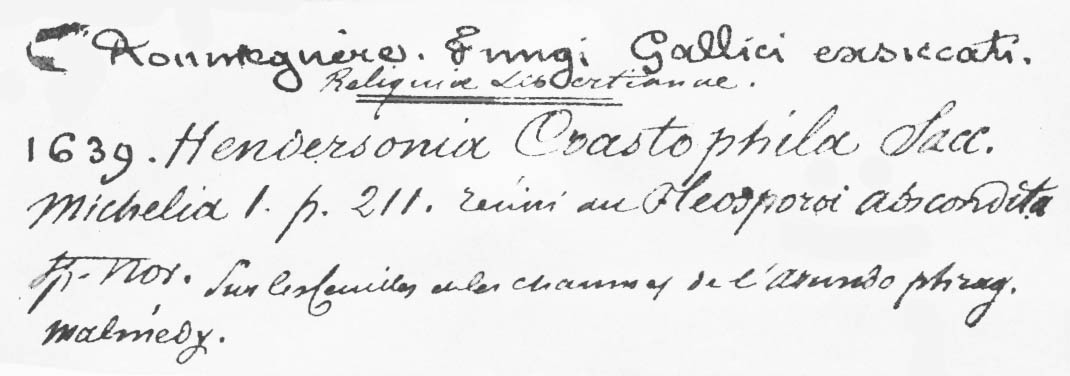 C Roumeguère. Fungi Gallici exsiccati.
Reliquiae Libertianae.
1639. Hendersonia Crastophila Sacc.
Michelia 1. p. 211. réuni au Pleospora abscondita
Sp. Nov. Sur les feuilles et les chaumes de l'arundo phrag.
Malmedy.